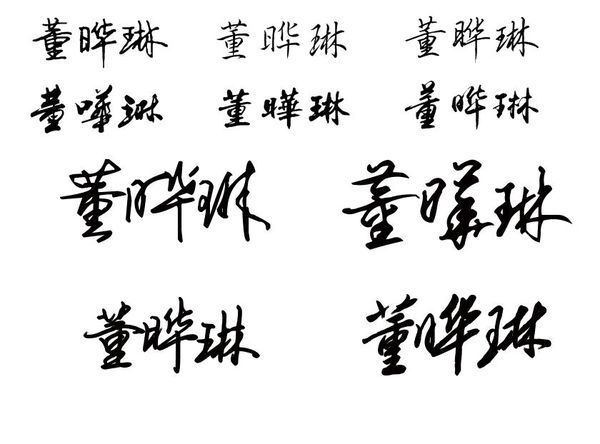 董晔琳 董晔琳 董晔琳
董嘩琳 董曄琳 董晔琳
董晔琳 董曄琳
董晔琳 董晔琳